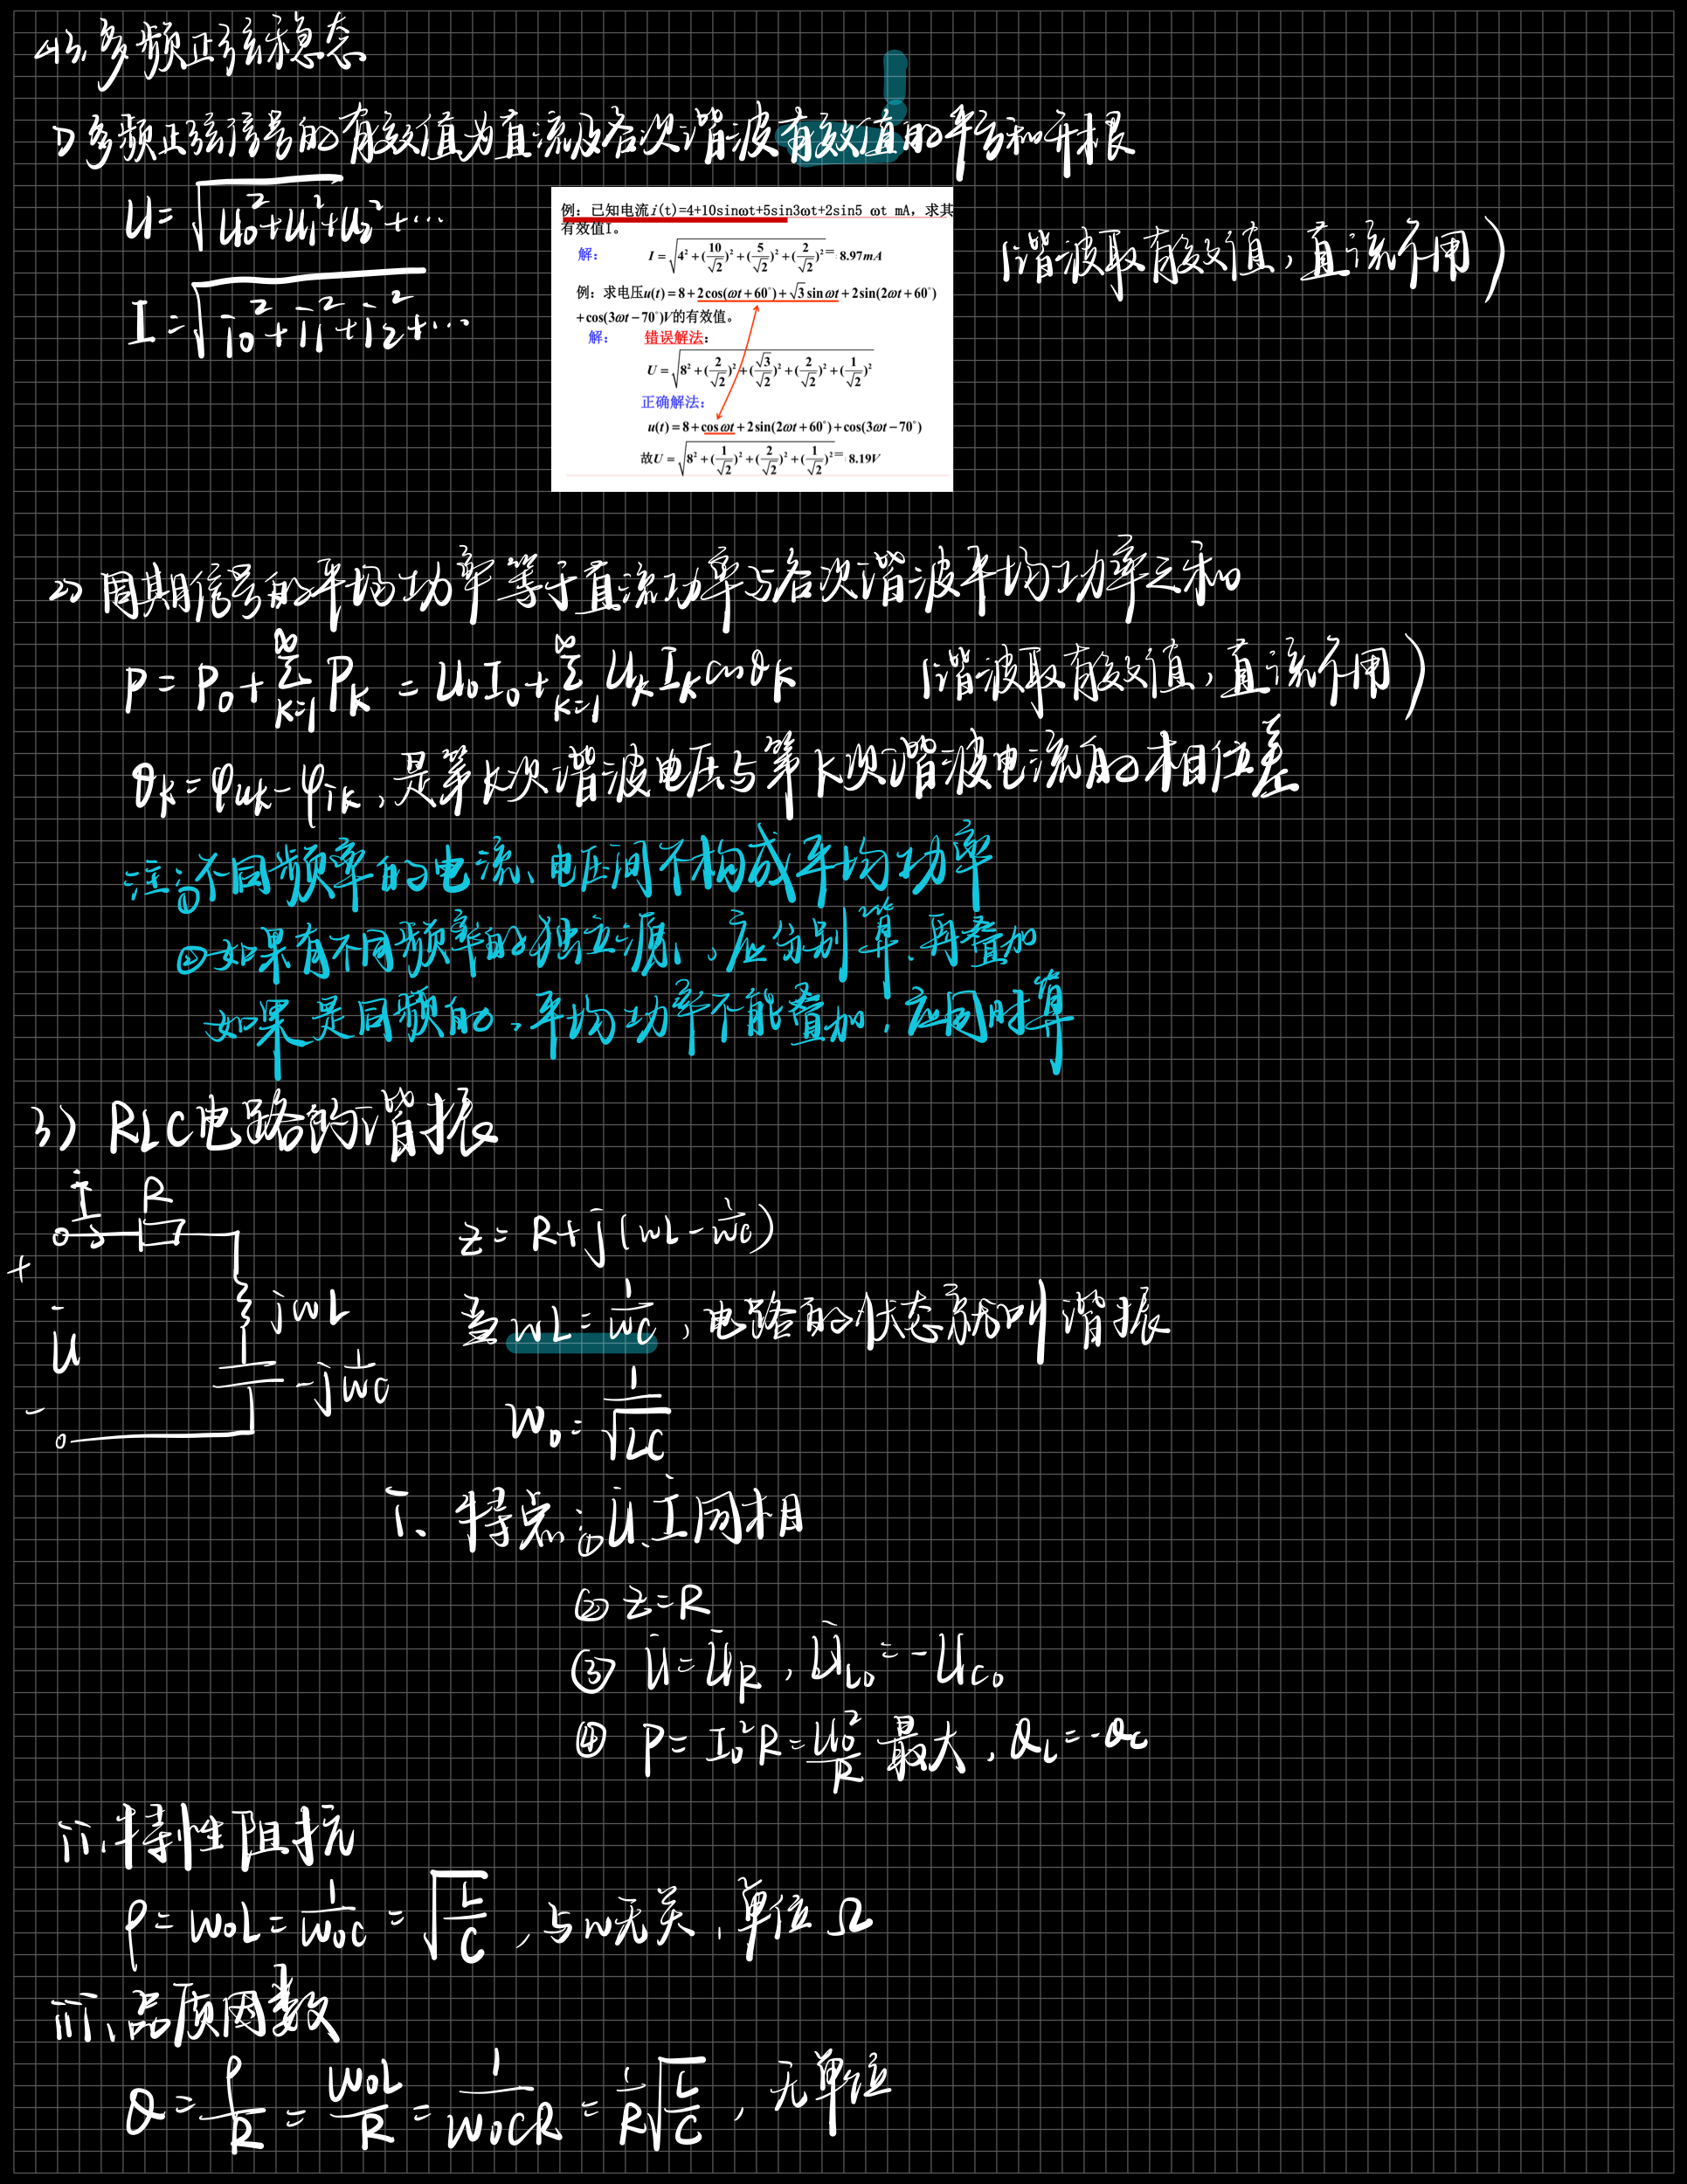 43. 多频正弦稳态
1) 多频正弦信号的有效值为直流及各次谐波有效值的平方和开根
U=√(U₀²+U₁²+U₂²+…
I=√(i₀²+i₁²+i₂²+…
(谐波取有效值,直流不用)
例: 已知电流i(t)=4+10sinωt+5sin3ωt+2sin5 ωt mA, 求其
有效值I。
解: I=√(4²+(10/√2)²+(5/√2)²+(2/√2)²)= 8.97mA
例: 求电压u(t)=8+2cos(ωt+60°)+√3 sinωt+2sin(2ωt+60°)
+cos(3ωt−70°)V的有效值。
解: 错误解法:
U=√(8²+(2/√2)²+(√3/√2)²+(2/√2)²+(1/√2)²)
正确解法:
u(t)=8+cosωt+2sin(2ωt+60°)+cos(3ωt−70°)
故U=√(8²+(1/√2)²+(2/√2)²+(1/√2)²)= 8.19V
2) 周期信号的平均功率等于直流功率与各次谐波平均功率之和
P=P₀+∑(k=1→∞)P_k=U₀I₀+∑(k=1→∞)U_kI_kcosθ_k (谐波取有效值,直流不用)
θ_k=φ_uk-φ_ik,是第k次谐波电压与第k次谐波电流的相位差
注:①不同频率的电流、电压间不构成平均功率
②如果有不同频率的独立源,应分别算,再叠加
如果是同频的,平均功率不能叠加,应同时算
3) RLC电路的谐振
İ R
+
U̇
-
jωL
-j1/ωC
Z=R+j(ωL-1/ωC)
当ωL=1/ωC,电路的状态就叫谐振
ω₀=1/√(LC)
i、特点:①U̇、İ同相
② Z=R
③ U̇=U̇_R,U̇_L0=-U̇_C0
④ P=I₀²R=U₀²/R 最大,Q_L=-Q_C
ii、特性阻抗
ρ=ω₀L=1/ω₀C=√(L/C),与ω无关,单位Ω
iii、品质因数
Q=ρ/R=ω₀L/R=1/ω₀CR=1/R√(L/C),无单位